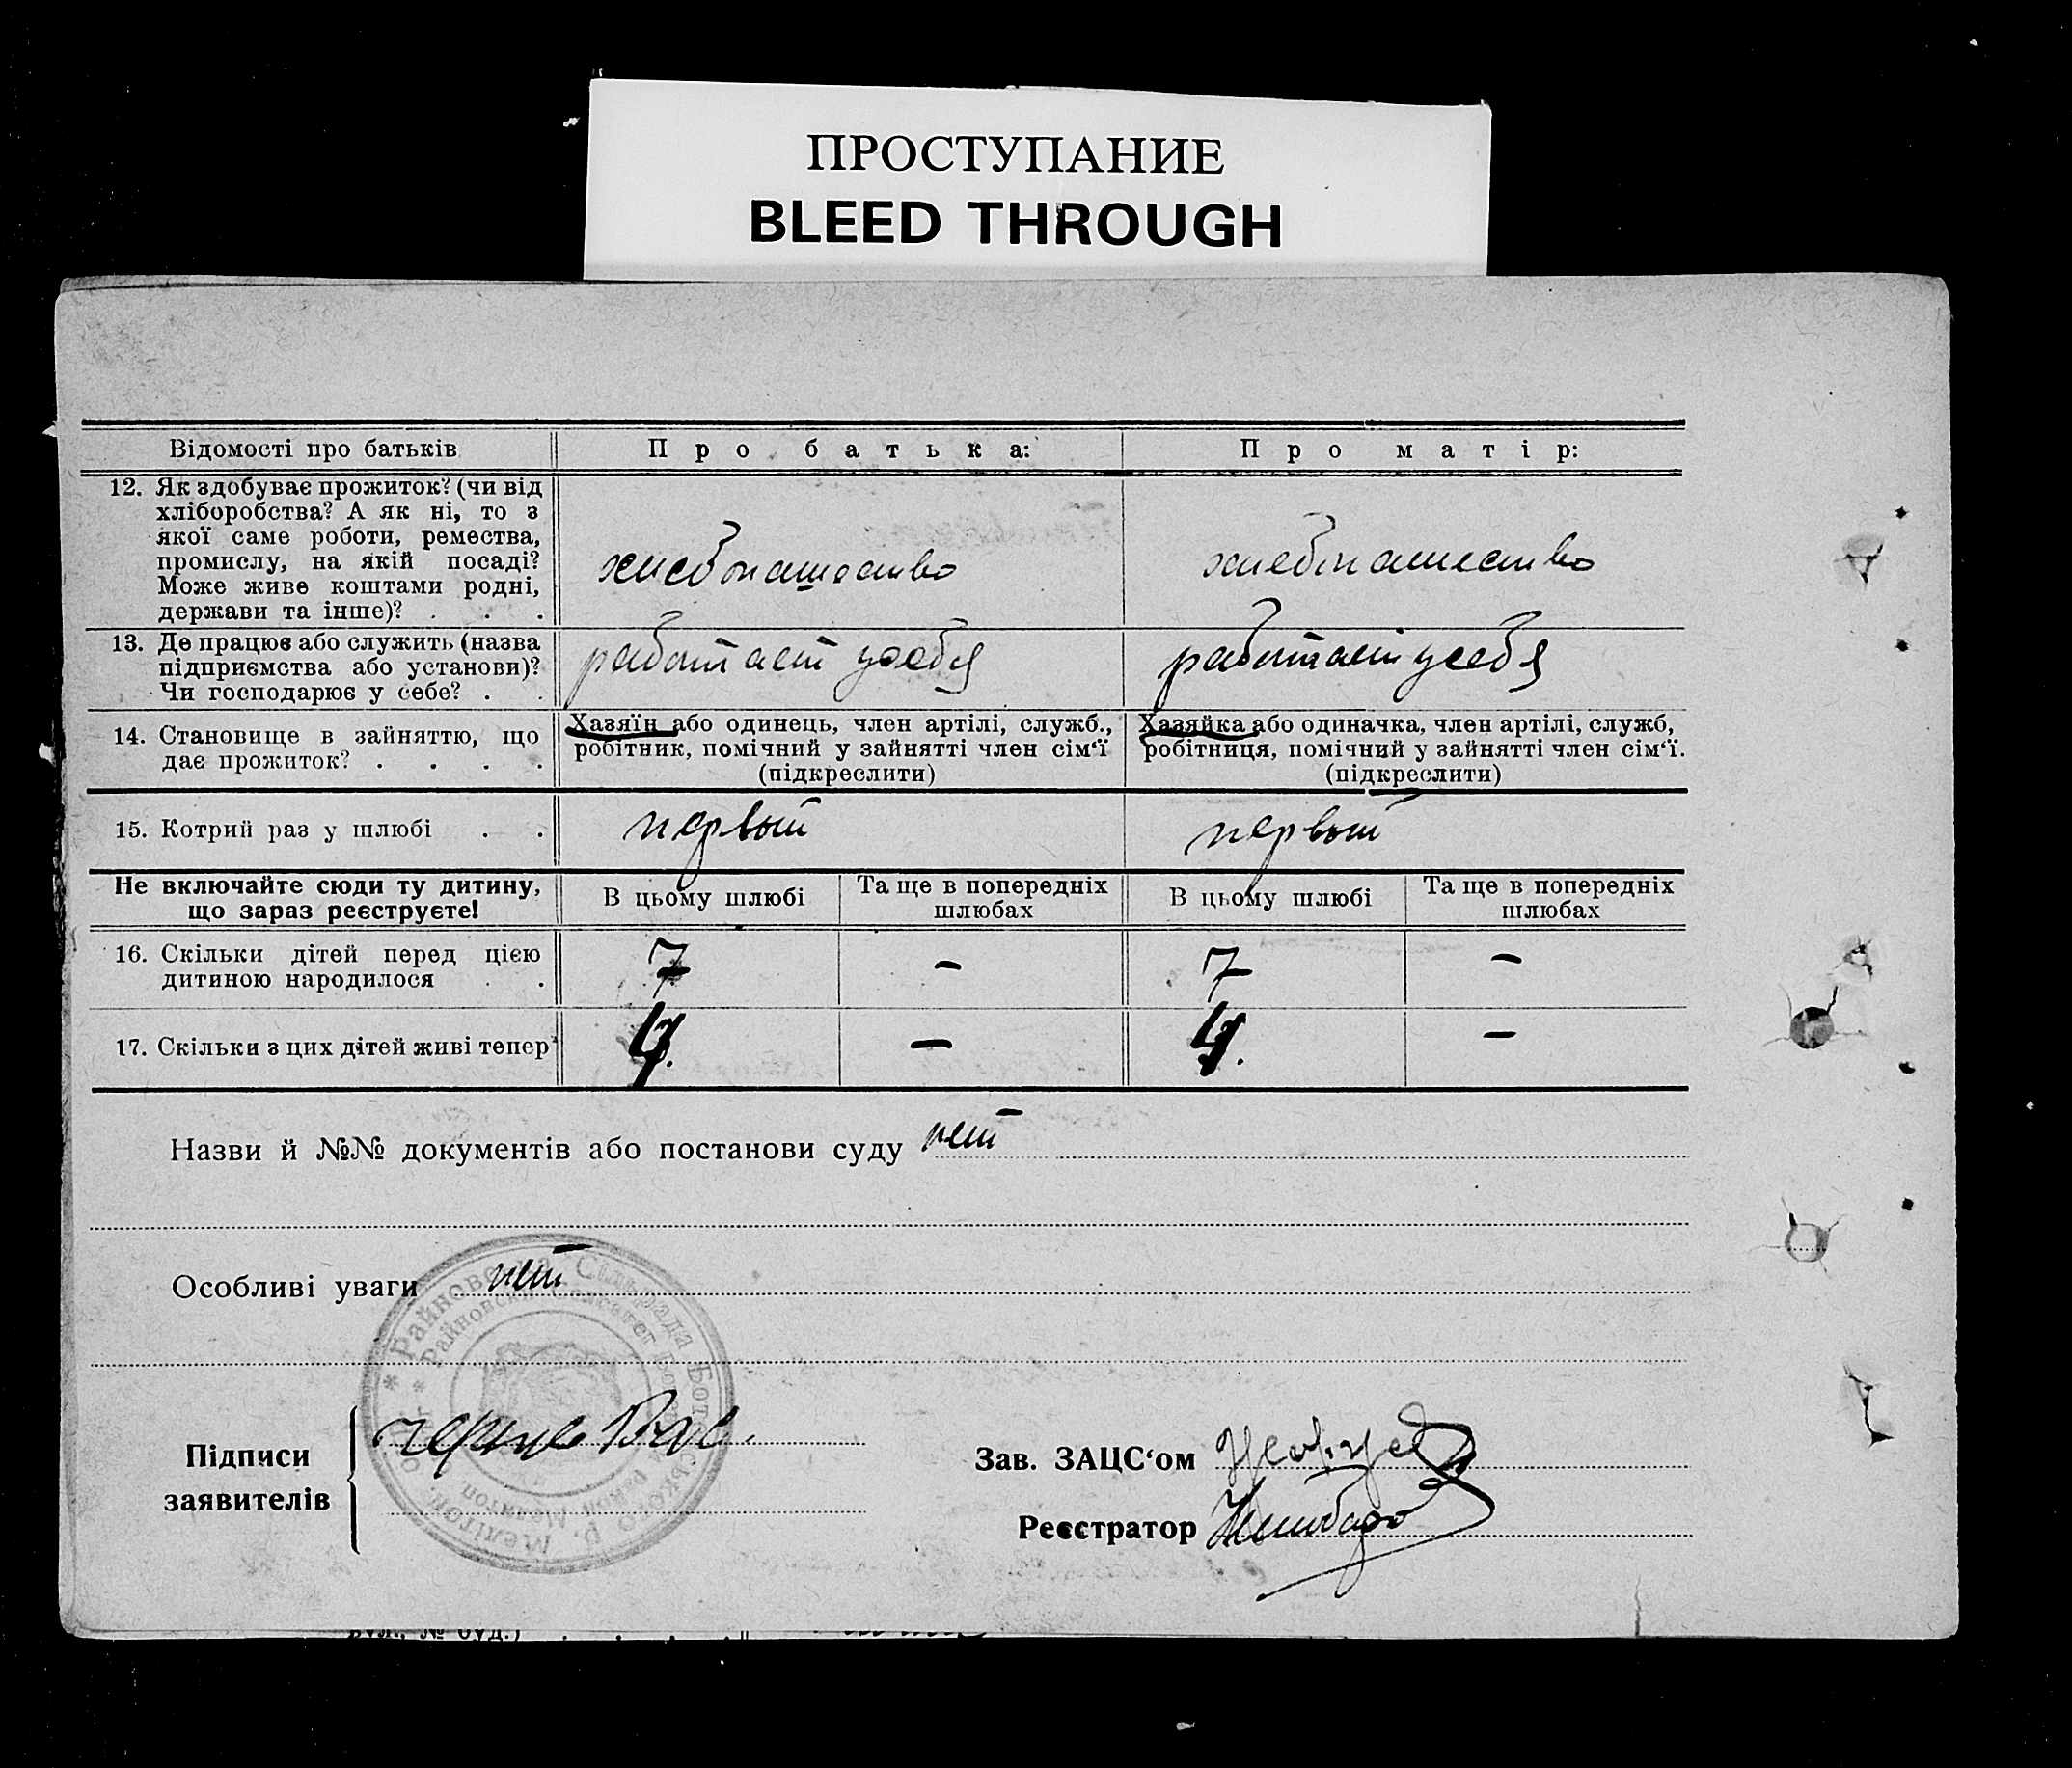 ПРОСТУПАНИЕ
BLEED THROUGH
Відомості про батьків
Про батька:
Про матір:
12. Як здобуває прожиток? (чи від
хліборобства? А як ні, то з
якої саме роботи, ремества,
промислу, на якій посаді?
Може живе коштами родні,
держави та інше)? . . .
хлебопашество
хлебопашество
13. Де працює або служить (назва
підприємства або установи)?
Чи господарює у себе? . .
работает у себя
работает у себя
14. Становище в зайняттю, що
дає прожиток? . . . .
Хазяїн або одинець, член артілі, служб.,
робітник, помічний у зайнятті член сім'ї
(підкреслити)
Хазяйка або одиначка, член артілі, служб,
робітниця, помічний у зайнятті член сім'ї.
(підкреслити)
15. Котрий раз у шлюбі . .
первый
первый
Не включайте сюди ту дитину,
що зараз реєструєте!
В цьому шлюбі
Та ще в попередніх
шлюбах
В цьому шлюбі
Та ще в попередніх
шлюбах
16. Скільки дітей перед цією
дитиною народилося . .
7
–
7
–
17. Скільки з цих дітей живі тепер
4.
–
4.
–
Назви й №№ документів або постанови суду нет
Особливі уваги нет
Райновська Сільрада
Підписи
заявителів
Зав. ЗАЦС'ом
Реєстратор